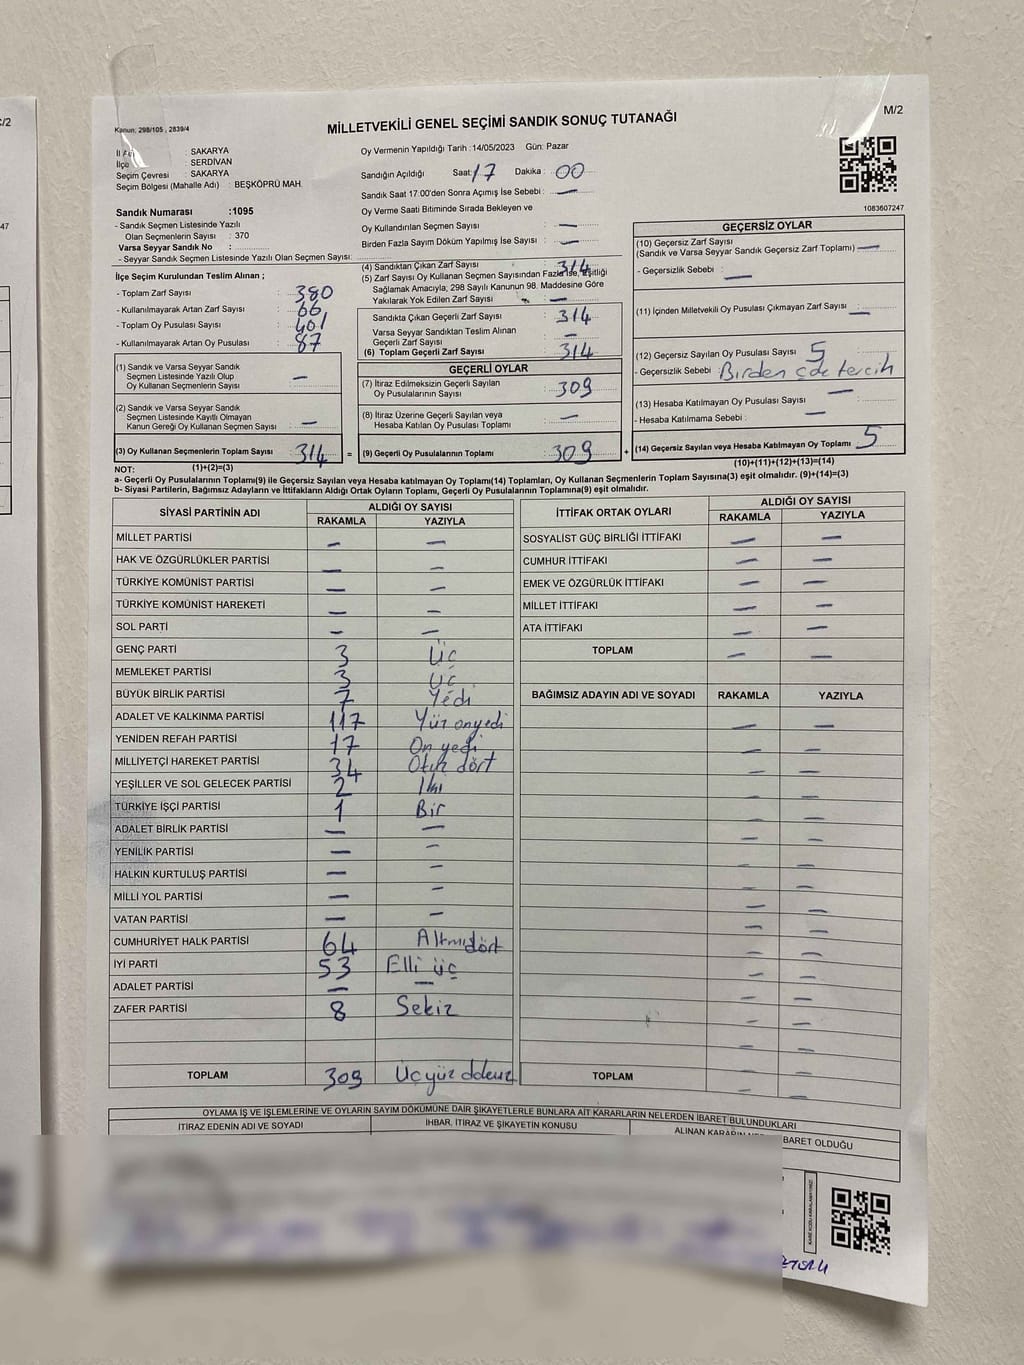 M/2
Kanun: 298/105 , 2839/4
MİLLETVEKİLİ GENEL SEÇİMİ SANDIK SONUÇ TUTANAĞI
İl : SAKARYA
İlçe : SERDİVAN
Seçim Çevresi : SAKARYA
Seçim Bölgesi (Mahalle Adı) : BEŞKÖPRÜ MAH.
Sandık Numarası :1095
- Sandık Seçmen Listesinde Yazılı
Olan Seçmenlerin Sayısı : 370
Varsa Seyyar Sandık No :
- Seyyar Sandık Seçmen Listesinde Yazılı Olan Seçmen Sayısı:
İlçe Seçim Kurulundan Teslim Alınan ;
- Toplam Zarf Sayısı : 380
- Kullanılmayarak Artan Zarf Sayısı : 66
- Toplam Oy Pusulası Sayısı : 401
- Kullanılmayarak Artan Oy Pusulası : 87
(1) Sandık ve Varsa Seyyar Sandık
Seçmen Listesinde Yazılı Olup
Oy Kullanan Seçmenlerin Sayısı : —
(2) Sandık ve Varsa Seyyar Sandık
Seçmen Listesinde Kayıtlı Olmayan
Kanun Gereği Oy Kullanan Seçmen Sayısı : —
(3) Oy Kullanan Seçmenlerin Toplam Sayısı : 314 =
Oy Vermenin Yapıldığı Tarih :14/05/2023 Gün: Pazar
Sandığın Açıldığı Saat: 17 Dakika : 00
Sandık Saat 17:00'den Sonra Açımış İse Sebebi : —
Oy Verme Saati Bitiminde Sırada Bekleyen ve
Oy Kullandırılan Seçmen Sayısı : —
Birden Fazla Sayım Döküm Yapılmış İse Sayısı : —
(4) Sandıktan Çıkan Zarf Sayısı : 314
(5) Zarf Sayısı Oy Kullanan Seçmen Sayısından Fazla İse, Eşitliği
Sağlamak Amacıyla; 298 Sayılı Kanunun 98. Maddesine Göre
Yakılarak Yok Edilen Zarf Sayısı : —
Sandıkta Çıkan Geçerli Zarf Sayısı : 314
Varsa Seyyar Sandıktan Teslim Alınan
Geçerli Zarf Sayısı : —
(6) Toplam Geçerli Zarf Sayısı : 314
GEÇERLİ OYLAR
(7) İtiraz Edilmeksizin Geçerli Sayılan
Oy Pusulalarının Sayısı : 309
(8) İtiraz Üzerine Geçerli Sayılan veya
Hesaba Katılan Oy Pusulası Toplamı : —
(9) Geçerli Oy Pusulalarının Toplamı : 309 +
1083607247
GEÇERSİZ OYLAR
(10) Geçersiz Zarf Sayısı
(Sandık ve Varsa Seyyar Sandık Geçersiz Zarf Toplamı) —
- Geçersizlik Sebebi : —
(11) İçinden Milletvekili Oy Pusulası Çıkmayan Zarf Sayısı : —
(12) Geçersiz Sayılan Oy Pusulası Sayısı : 5
- Geçersizlik Sebebi : Birden çok tercih
(13) Hesaba Katılmayan Oy Pusulası Sayısı : —
- Hesaba Katılmama Sebebi : —
(14) Geçersiz Sayılan veya Hesaba Katılmayan Oy Toplamı : 5
NOT: (1)+(2)=(3) (10)+(11)+(12)+(13)=(14)
a- Geçerli Oy Pusulalarının Toplamı(9) ile Geçersiz Sayılan veya Hesaba katılmayan Oy Toplamı(14) Toplamları, Oy Kullanan Seçmenlerin Toplam Sayısına(3) eşit olmalıdır. (9)+(14)=(3)
b- Siyasi Partilerin, Bağımsız Adayların ve İttifakların Aldığı Ortak Oyların Toplamı, Geçerli Oy Pusulalarının Toplamına(9) eşit olmalıdır.
SİYASİ PARTİNİN ADI ALDIĞI OY SAYISI
RAKAMLA YAZIYLA
MİLLET PARTİSİ — —
HAK VE ÖZGÜRLÜKLER PARTİSİ — —
TÜRKİYE KOMÜNİST PARTİSİ — —
TÜRKİYE KOMÜNİST HAREKETİ — —
SOL PARTİ — —
GENÇ PARTİ 3 Üç
MEMLEKET PARTİSİ 3 Üç
BÜYÜK BİRLİK PARTİSİ 7 Yedi
ADALET VE KALKINMA PARTİSİ 117 Yüz onyedi
YENİDEN REFAH PARTİSİ 17 On yedi
MİLLİYETÇİ HAREKET PARTİSİ 34 Otuz dört
YEŞİLLER VE SOL GELECEK PARTİSİ 2 İki
TÜRKİYE İŞÇİ PARTİSİ 1 Bir
ADALET BİRLİK PARTİSİ — —
YENİLİK PARTİSİ — —
HALKIN KURTULUŞ PARTİSİ — —
MİLLİ YOL PARTİSİ — —
VATAN PARTİSİ — —
CUMHURİYET HALK PARTİSİ 64 Altmıdört
İYİ PARTİ 53 Elli üç
ADALET PARTİSİ — —
ZAFER PARTİSİ 8 Sekiz
TOPLAM 309 Üçyüz
İTTİFAK ORTAK OYLARI ALDIĞI OY SAYISI
RAKAMLA YAZIYLA
SOSYALİST GÜÇ BİRLİĞİ İTTİFAKI — —
CUMHUR İTTİFAKI — —
EMEK VE ÖZGÜRLÜK İTTİFAKI — —
MİLLET İTTİFAKI — —
ATA İTTİFAKI — —
TOPLAM — —
BAĞIMSIZ ADAYIN ADI VE SOYADI RAKAMLA YAZIYLA
TOPLAM — —
OYLAMA İŞ VE İŞLEMLERİNE VE OYLARIN SAYIM DÖKÜMÜNE DAİR ŞİKAYETLERLE BUNLARA AİT KARARLARIN NELERDEN İBARET BULUNDUKLARI
İTİRAZ EDENİN ADI VE SOYADI İHBAR, İTİRAZ VE ŞİKAYETİN KONUSU ALINAN KARARIN İBARET OLDUĞU
/2
47